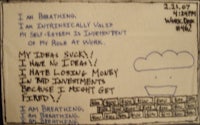 I AM BREATHING.
I AM INTRINSICALLY VALID
MY SELF-ESTEEM IS INDEPENDENT
OF MY ROLE AT WORK.
MY IDEAS SUCK!
I HAVE NO IDEAS!
I HATE LOSING MONEY
IN BAD INVESTMENTS
BECAUSE I MIGHT GET
FIRED!
I AM BREATHING.
I AM BREATHING.
I AM BREATHING.
2.21.07
4:24PM
WORK